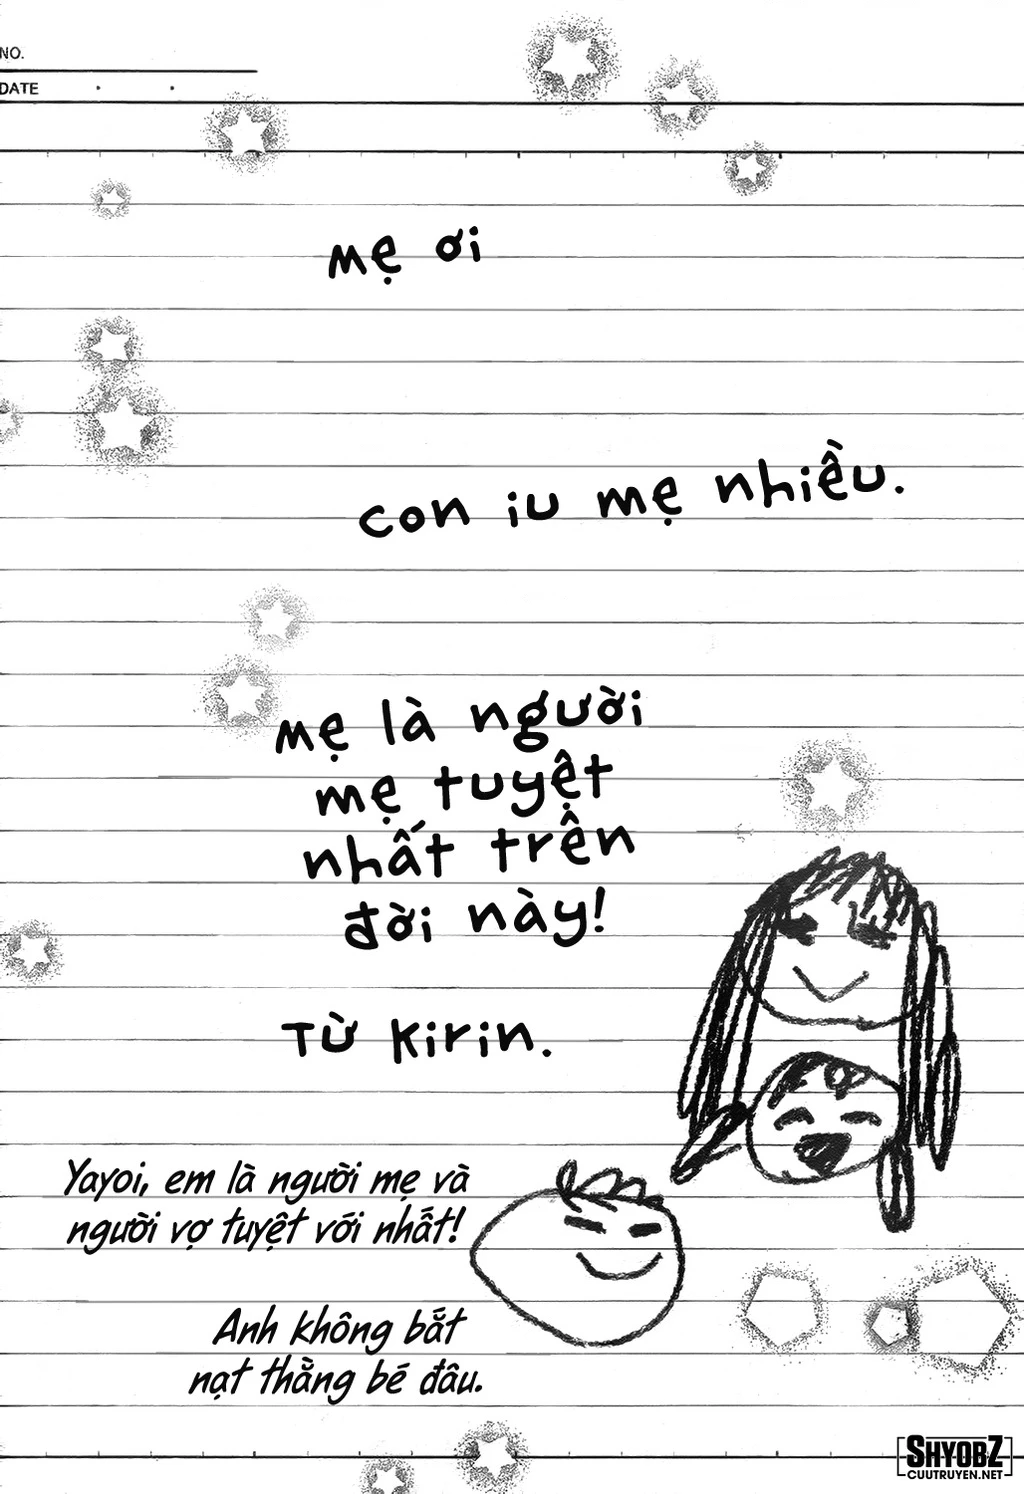 NO.
DATE
mẹ ơi
con iu mẹ nhiều.
mẹ là người
mẹ tuyệt
nhất trên
đời này!
Từ Kirin.
Yayoi, em là người mẹ và
người vợ tuyệt vời nhất!
Anh không bắt
nạt thằng bé đâu.
SHYOBZ
CUUTRUYEN.NET